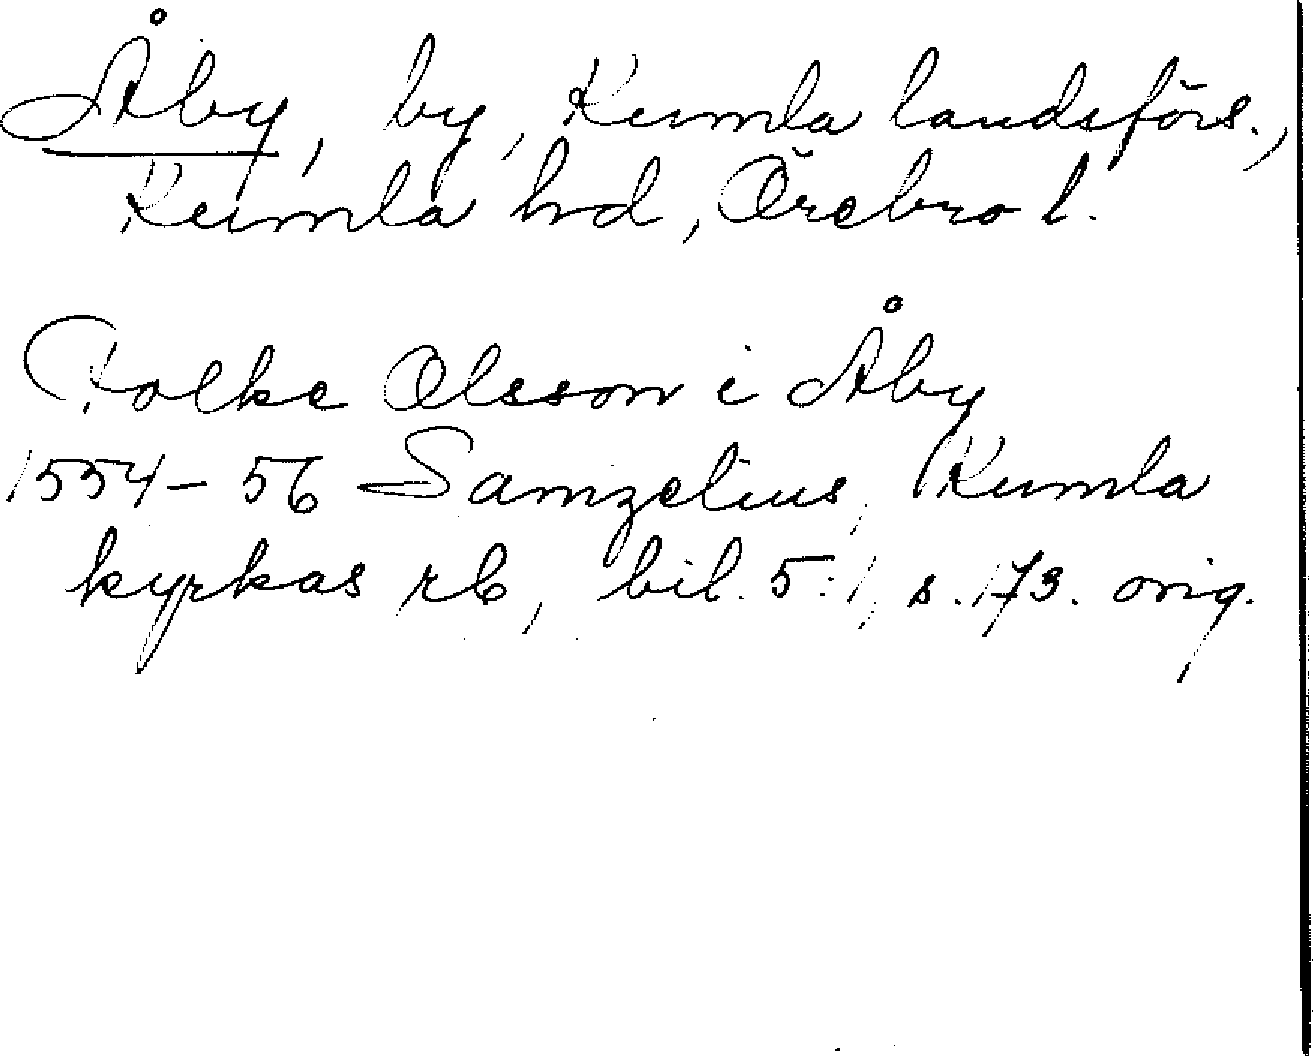 Åby, by, Kumla landsförs.,
Kumla hd, Örebro l.
Folke Olsson i Åby
1554-56 Samzelius, Kumla
kyrkas rb, bil. 5:1, s. 173. orig.